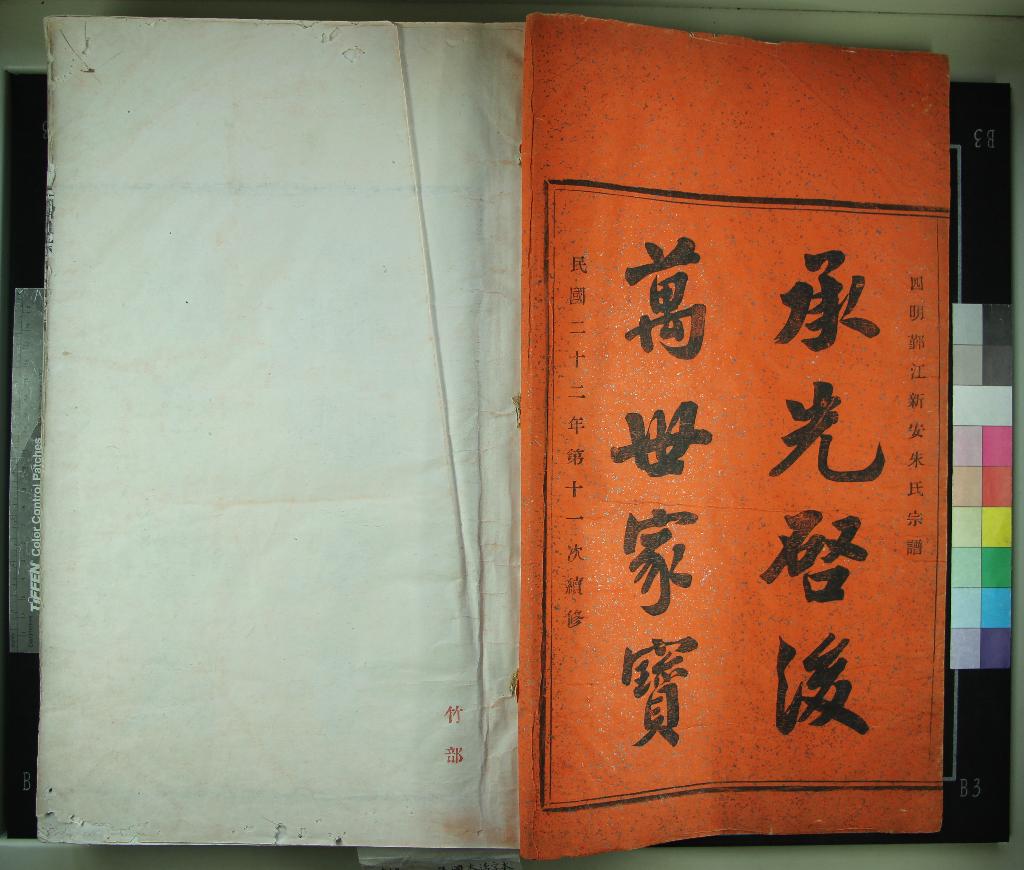 四明鄞江新安朱氏宗譜
承光啓後
萬世家寶
民國二十二年第十一次續修
竹部
TIFFEN Color Control Patches
B3
B3
B